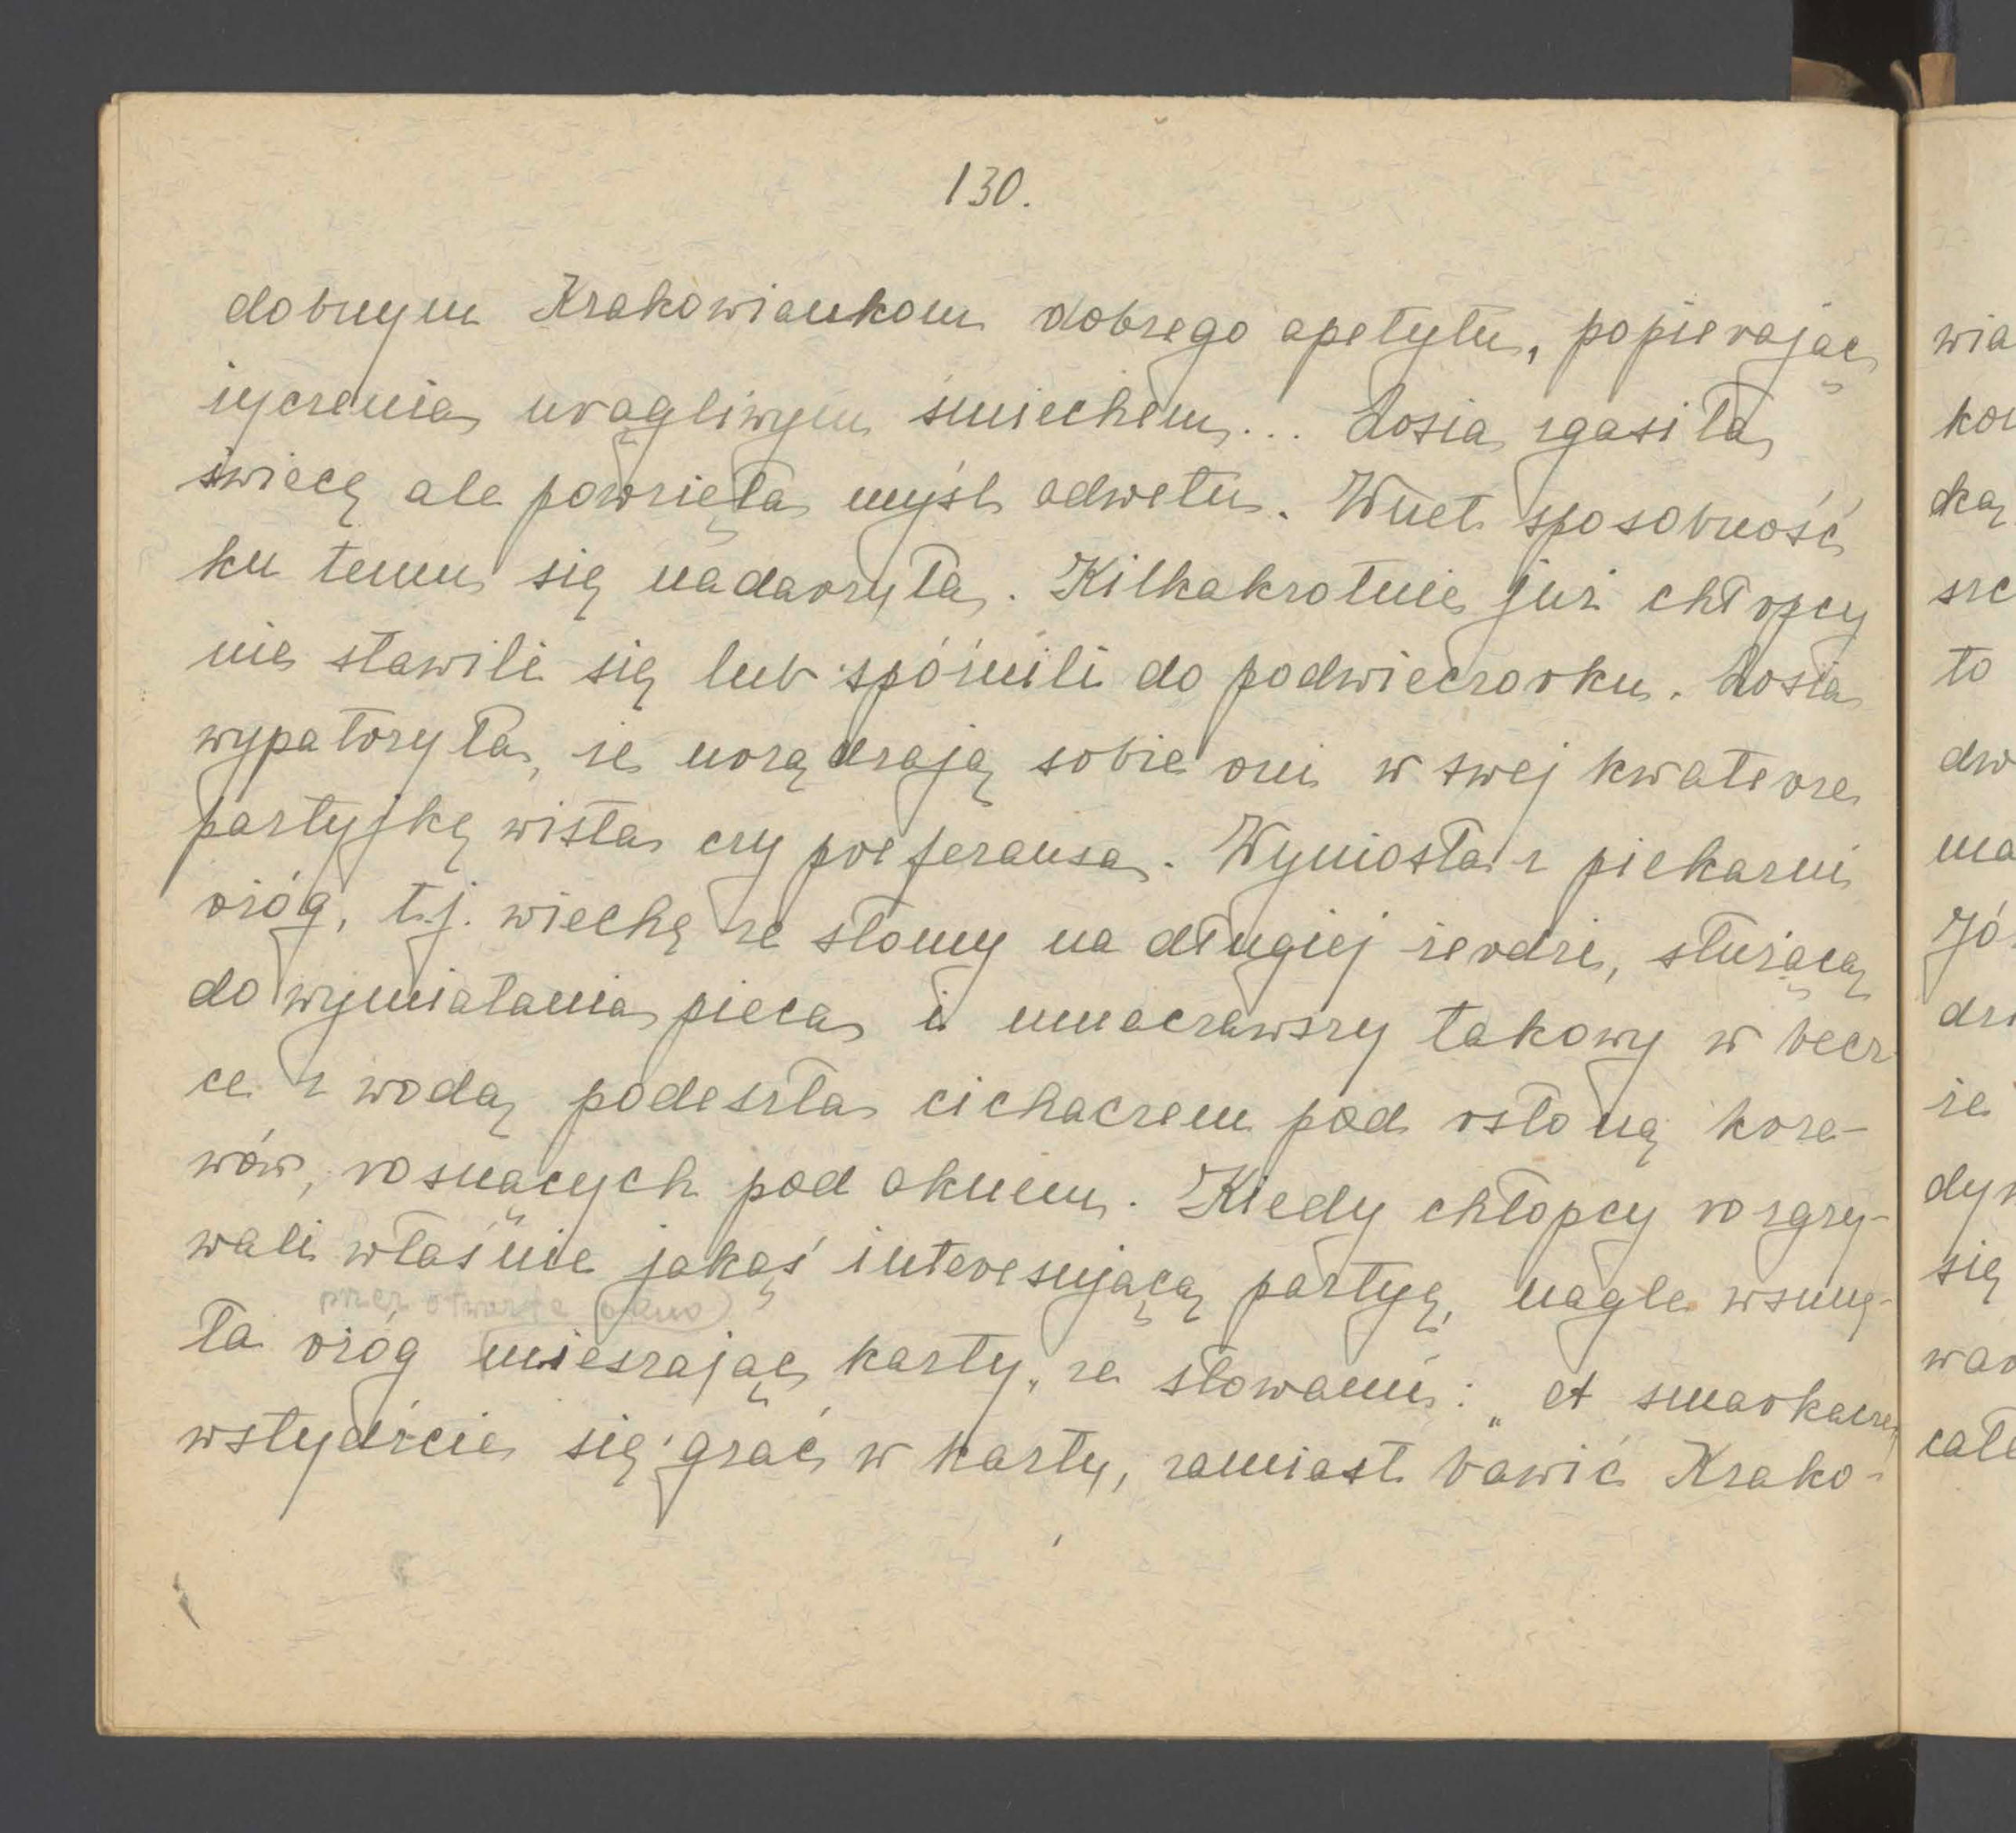 130.
dobnym Krakowiankom dobrego apetytu, popierając
życzenia urągliwym śmiechem... Zosia zgasiła
świecę ale powzięła myśl odwetu. Wnet sposobność
ku temu się nadarzyła. Kilkakrotnie już chłopcy
nie stawili się lub spóźnili do podwieczorku. Zosia
wypatrzyła, że urządzają sobie oni w swej kwaterze
partyjkę wista czy preferansa. Wyniosła z piekarni
ożóg, t.j. wiechę ze słomy na długiej żerdzi, służącą
do wymiatania pieca i umaczawszy takowy w becz-
ce z wodą podeszła cichaczem pod osłoną krze-
wów, rosnących pod oknem. Kiedy chłopcy rozgry-
wali właśnie jakąś interesującą partyę, nagle wsunę-
przez otwarte okno
ła ożóg mieszając karty, ze słowami: „A smarkacze,
wstydźcie się grać w karty, zamiast bawić Krako-
wia
ką
to
dw
ma
że
się